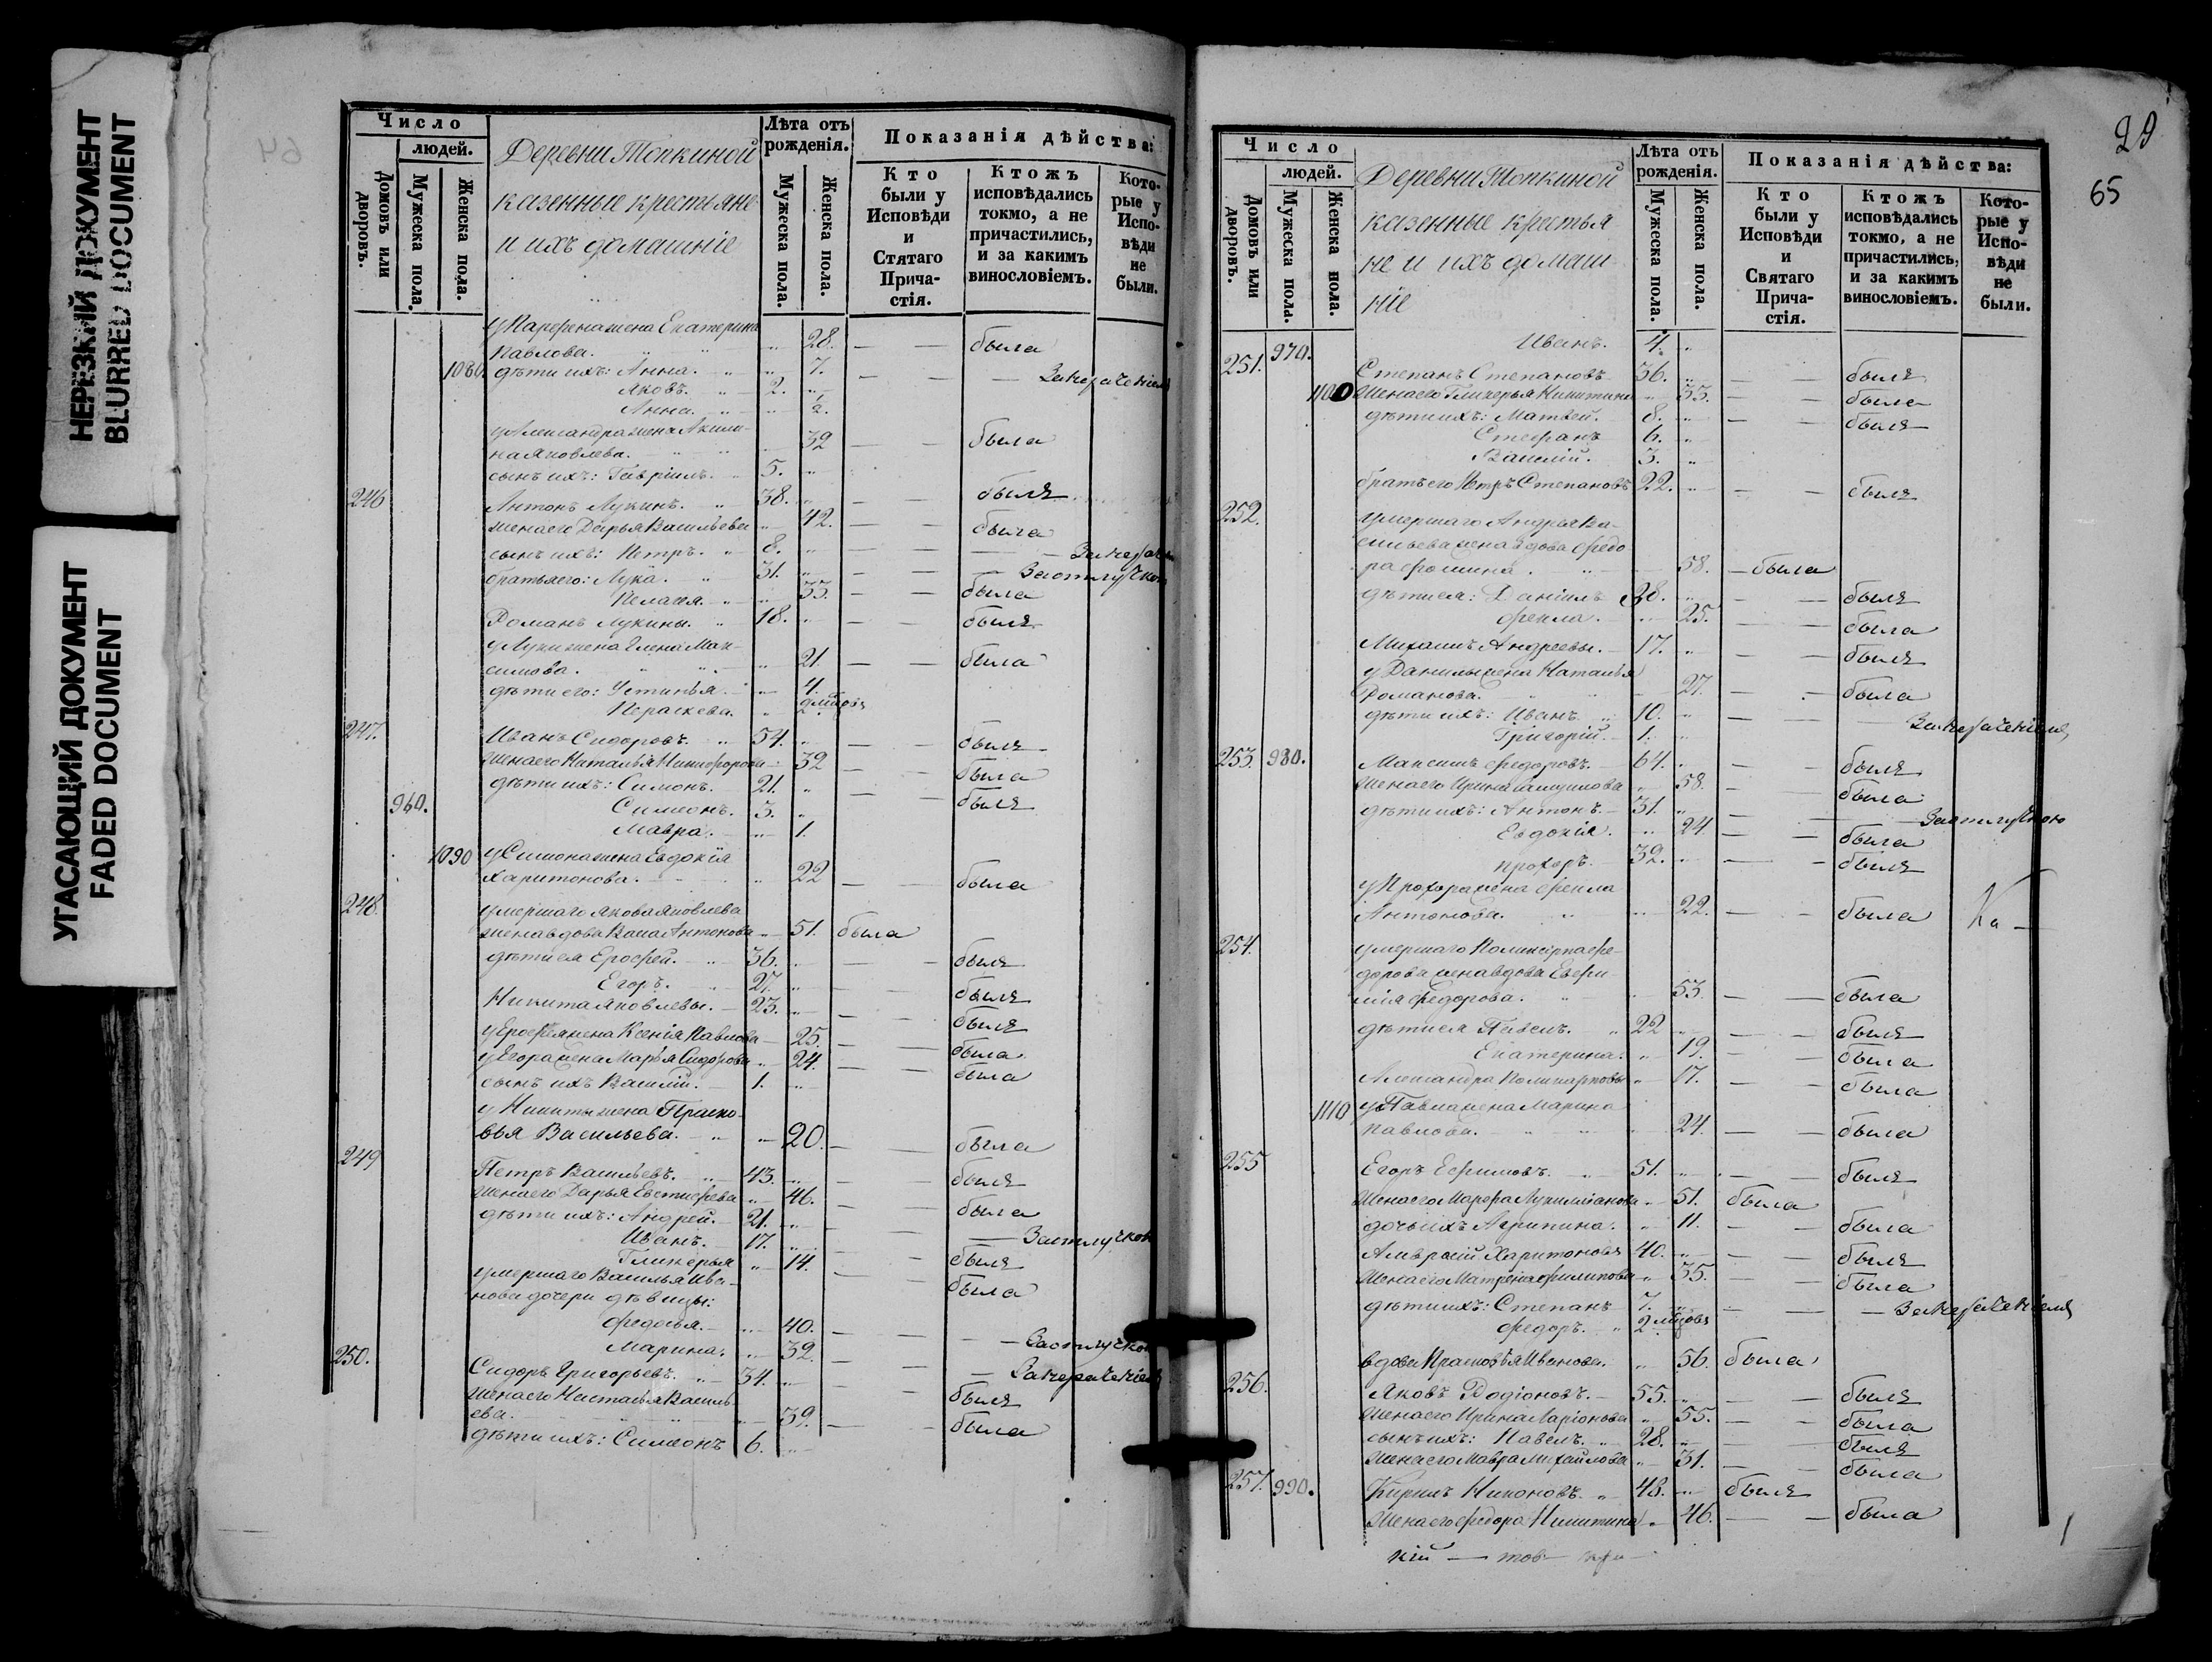 НЕРЕЗКИЙ ДОКУМЕНТ
BLURRED DOCUMENT
УГАСАЮЩИЙ ДОКУМЕНТ
FADED DOCUMENT
Число
людей.
Домовъ или дворовъ.
Мужеска пола.
Женска пола.
Деревни Топкиной
казенные крестьяне
и ихъ домашніе
Лѣта отъ рожденія.
Мужеска пола.
Женска пола.
Показанія дѣйства:
Кто были у Исповѣди и Стятаго Причастія.
Ктожъ исповѣдались токмо, а не причастились, и за какимъ винословіемъ.
Которые у Исповѣди не были.
у Парфена жена Екатерина
Павлова. 28. — — была
1080. дѣти ихъ: Анна. 7. — — —
Яковъ. 2.
Анна. 2.
у Александра жена Акили-
на Яковлева. 32 — — была
сынъ ихъ: Гавріилъ. 5.
246 Антонъ Лукинъ. 38. — — былъ
жена его Дарья Васильева 42. — — была
сынъ ихъ: Петръ. 8. — — —
братья его: Лука. 31. — — — За отлучкою
Пелагея. 33. — — была
Романъ Лукины. 18. — — былъ
у Луки жена Елена Мак-
симова. 21 — — была
дѣти его: Устинья. 4.
Параскева. 2 мѣсяц
247. Иванъ Сидоровъ. 54. — — былъ
жена его Наталья Никифорова 32 — — была
дѣти ихъ: Симонъ. 21. — — былъ
940. Симеонъ. 3.
Мавра. 1.
1090 у Симона жена Евдокія
Харитонова. 22 — — была
248. умершаго Якова Яковлева
жена вдова Васа Антонова 51. была
дѣти ея Ерофей. 36. — былъ
Егоръ. 27. — — былъ
Никита Яковлевы. 23. — — былъ
у Ерофея жена Ксенія Павлова 25. — — была
у Егора жена Марья Сидорова 24. — — была
сынъ ихъ Василій. 1.
у Никиты жена Праско-
вья Васильева. 20. — — была
249 Петръ Васильевъ. 43. — — былъ
жена его Дарья Евстифеева 46. — — была
дѣти ихъ: Андрей. 21. — — — За отлучкою
Иванъ. 17. — — былъ
Гликерья 14. — — была
умершаго Василья Ива-
нова дочери дѣвицы:
Федосья. 40. — — — За отлучкою
Марина. 39. — — —
250. Сидоръ Григорьевъ. 34. — — былъ
жена его Настасья Василь
ева. 39. — — была
дѣти ихъ: Симеонъ 6.
29
65
Число
людей.
Домовъ или дворовъ.
Мужеска пола.
Женска пола.
Деревни Топкиной
казенные крестья
не и ихъ домаш
ніе
Лѣта отъ рожденія.
Мужеска пола.
Женска пола.
Показанія дѣйства:
Кто были у Исповѣди и Святаго Причастія.
Ктожъ исповѣдались токмо, а не причастились, и за какимъ винословіемъ.
Которые у Исповѣди не были.
970. Иванъ. 4.
251. Степанъ Степановъ 36. — — былъ
1100 жена его Гликерья Никитина 33. — — была
дѣти ихъ: Матвей. 8. — — былъ
Стефанъ 6.
Василій. 3.
братъ его Петръ Степановъ 22. — — былъ
252. умершаго Андрея Ва-
сильева жена вдова Федо
ра Фомина. 58. — была
дѣти ея: Даніилъ 28. — — былъ
Фекла. 25. — — была
Михаилъ Андреевы. 17. — — былъ
у Данилы жена Наталья
Романова. 27. — — была
дѣти ихъ: Иванъ. 10. — — —
Григорій. 1.
253. 980. Максимъ Федоровъ. 64. — — былъ
жена его Ирина 58. — — была
дѣти ихъ: Антонъ. 31. — — — За отлучкою
Евдокія. 24 — — была
Прохоръ. 32. — — былъ
у Прохора жена Фекла
Антонова. 22. — — была
254. умершаго Поликарпа Фе-
дорова жена вдова Евфи
мія Федорова. 53. — — была
дѣти ея Павелъ. 22 — — былъ
Екатерина. 19. — — была
Александра Поликарповы 17. — — была
1110 у Павла жена Марина
Павлова. 24. — — была
255 Егоръ Ефимовъ. 51. — — былъ
жена его Марфа 51. была
дочь ихъ Агрипина. 11. — — была
Амвросій Харитоновъ 40. — — былъ
жена его Матрена Филипова 35. — — была
дѣти ихъ: Степанъ 7. — — —
Федоръ. 2
вдова Прасковья Иванова. 56. была
256. Яковъ Родіоновъ. 55. — — былъ
жена его Ирина Ларіонова 55. — — была
сынъ ихъ: Павелъ. 28. — — былъ
жена его Мавра Михайлова 31. — — была
257. 990. Кирилъ Никоновъ. 48. былъ
жена его Федора Никитина 46. — — была
кій — тов —